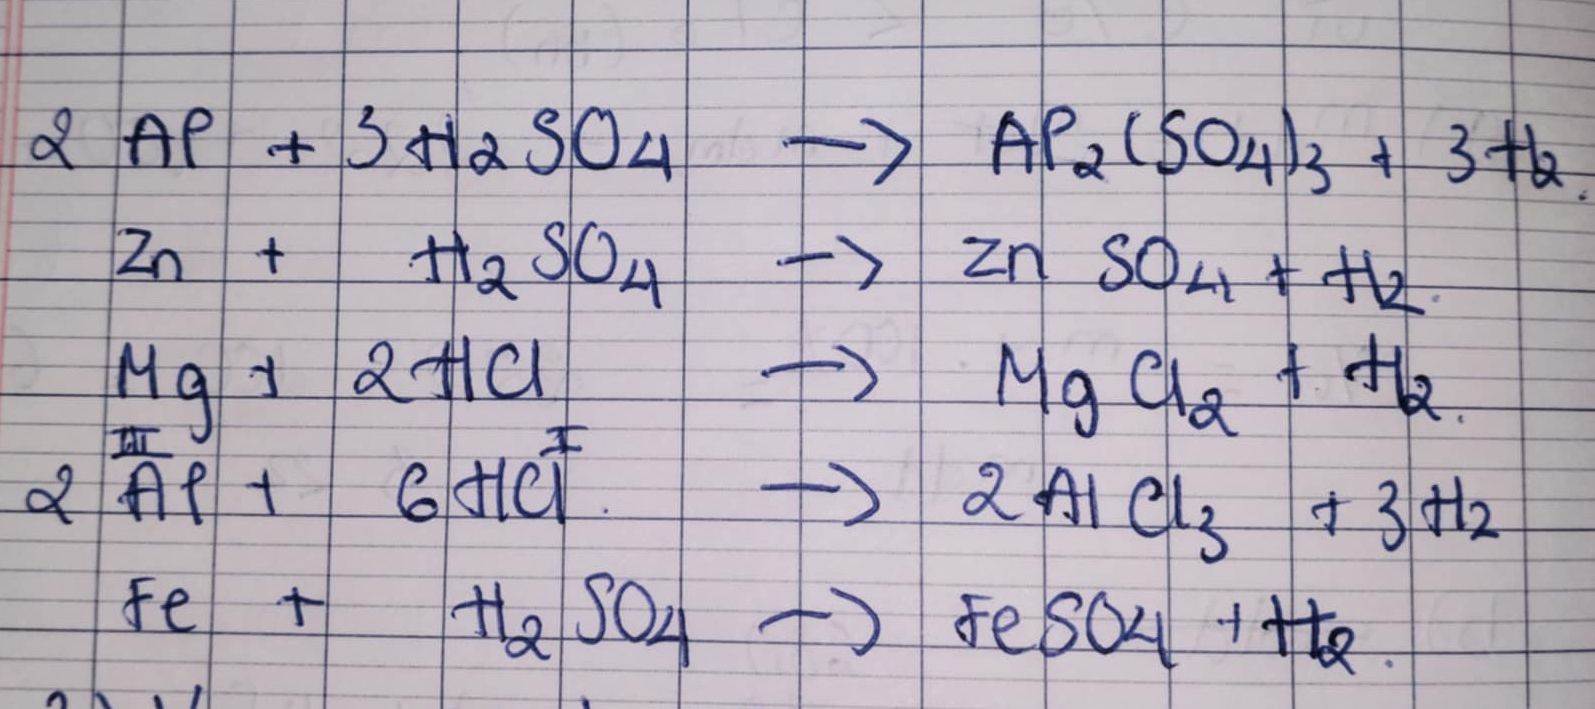 2 Al + 3 H2SO4 → Al2(SO4)3 + 3 H2.
Zn + H2SO4 → Zn SO4 + H2.
Mg + 2 HCl → Mg Cl2 + H2.
III I
2 Al + 6 HCl. → 2 Al Cl3 + 3 H2
Fe + H2SO4 → FeSO4 + H2.